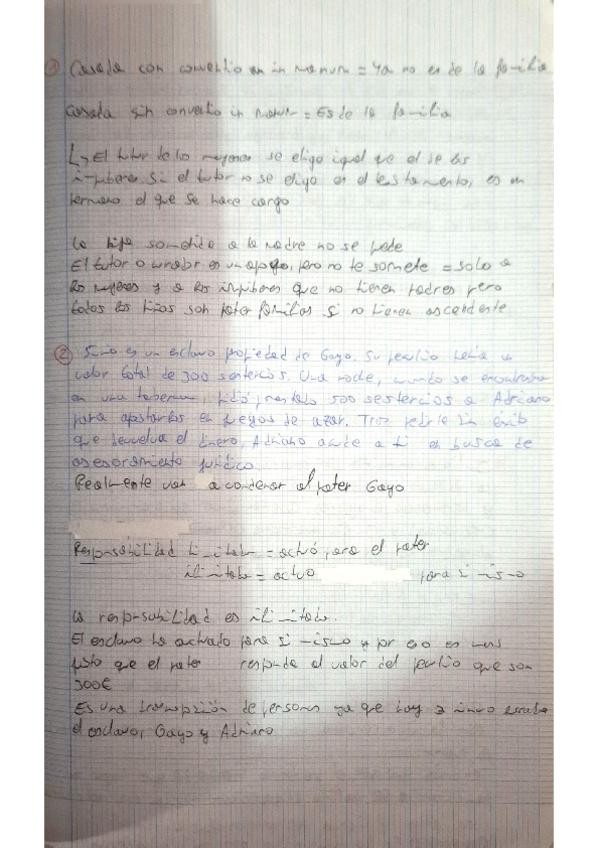 ① Casada con conventio in manum = Ya no es de la familia
Casada sin conventio in manum = Es de la familia
↳ El tutor de las mujeres se elige igual que el de los
impúberes si el tutor no se elige en el testamento, es un
hermano el que se hace cargo
La hija sometida a la madre no se puede
El tutor o curador es un apoyo, pero no te somete = solo a
las mujeres y a los impúberes que no tienen padres pero
todos los niños son pater familias si no tienen ascendente
② es un esclavo propiedad de Gayo. Su peculio tenía un
valor total de 300 sestercios. Una noche, cuando se encontraba
en una taberna, pidió prestado 500 sestercios a Adriano
para apostarlos en juegos de azar. Tras pedirle sin éxito
que devuelva el dinero, Adriano acude a ti en busca de
asesoramiento jurídico.
Realmente van a condenar al pater Gayo
Responsabilidad limitada = actuó para el pater
ilimitada = actuo para si mismo
La responsabilidad es ilimitada.
El esclavo ha actuado para si mismo y por eso es mas
justo que el pater responda al valor del peculio que son
300€
Es una transposición de personas ya que hay 3
el esclavo, Gayo y Adriano